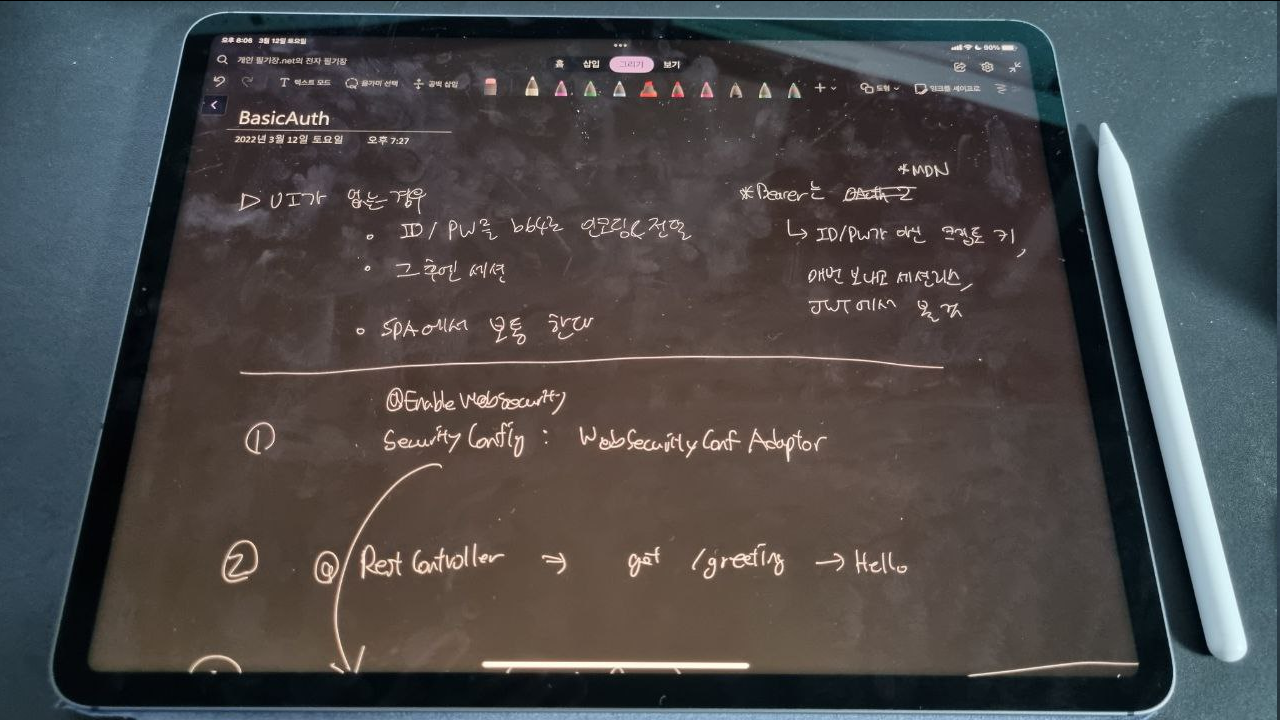 오후 8:06 3월 12일 토요일
90%
개인 필기장.net의 전자 필기장
홈 삽입 그리기 보기
텍스트 모드 올가미 선택 공백 삽입
도형 잉크를 셰이프로
BasicAuth
2022년 3월 12일 토요일 오후 7:27
▷ UI가 없는 경우
• ID/PW를 b64로 인코딩&전달
• 그 후엔 세션
• SPA에서 보통 한다
*MDN
*Bearer는 OAuth 2
↳ ID/PW가 아닌 토큰 키,
매번 보내고 세션리스,
JWT에서 볼 것
@EnableWebSecurity
① SecurityConfig : WebSecurityConf Adaptor
② @RestController ⇒ get /greeting → Hello